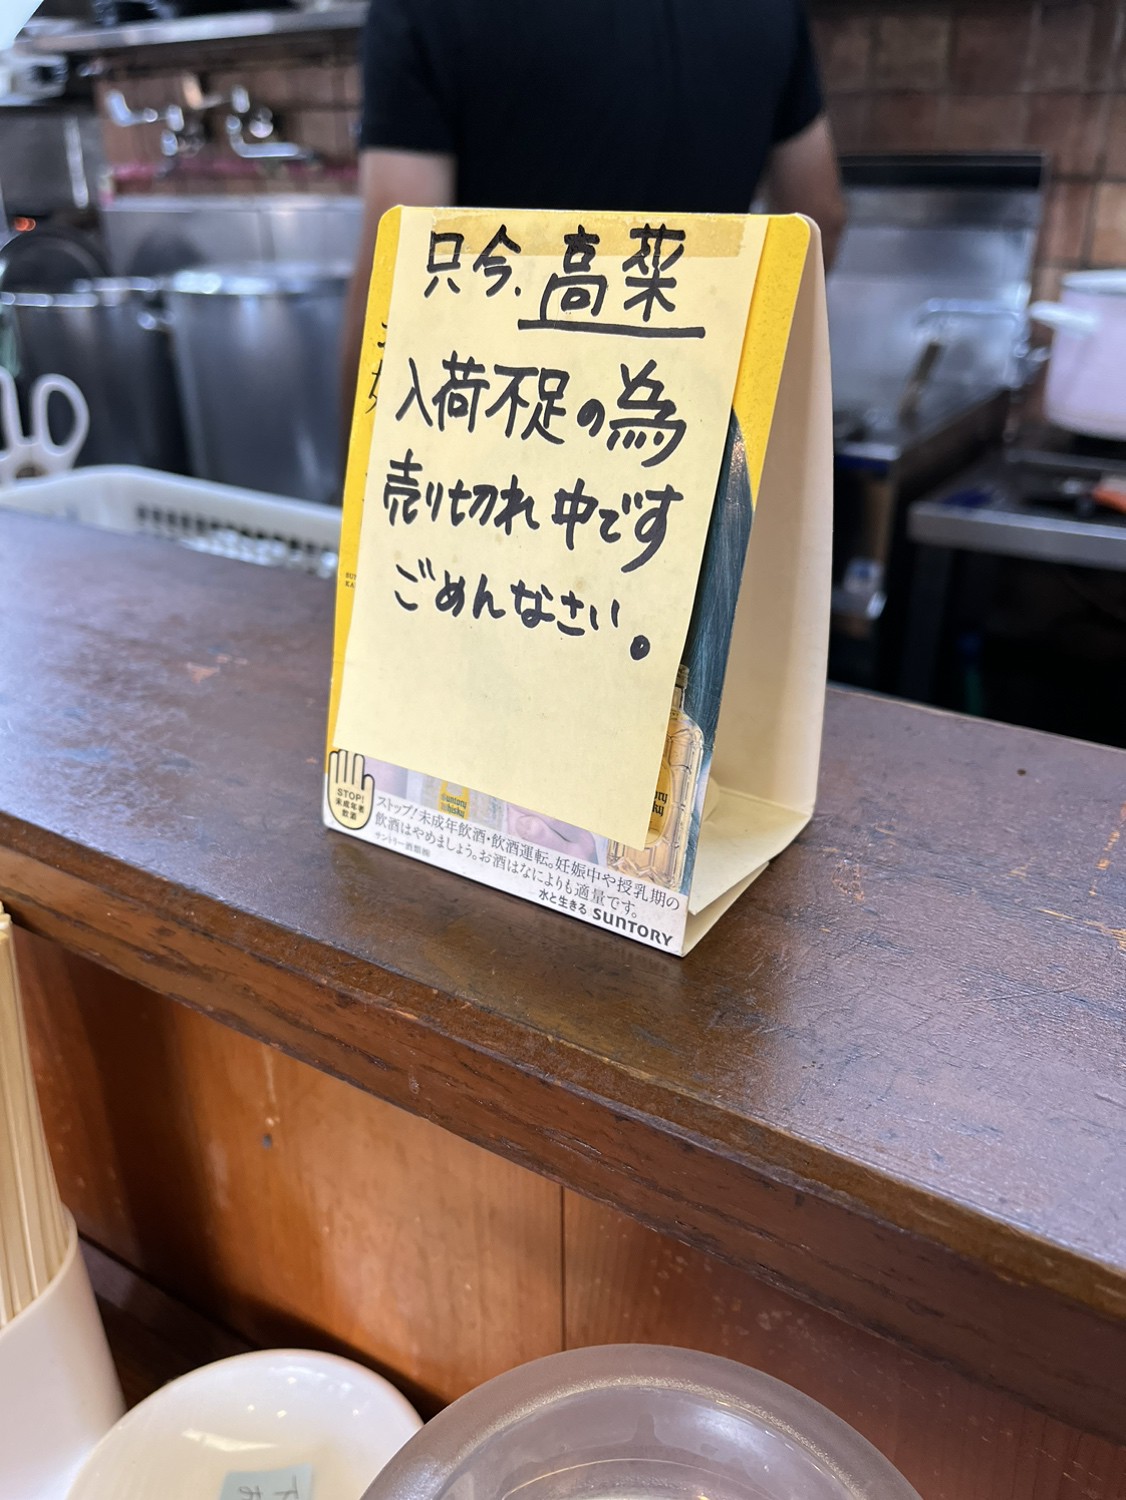 只今、高菜
入荷不足の為
売り切れ中です
ごめんなさい。
STOP!
未成年者
飲酒
ストップ!未成年飲酒・飲酒運転。妊娠中や授乳期の
飲酒はやめましょう。お酒はなによりも適量です。
サントリー酒類㈱
水と生きる SUNTORY